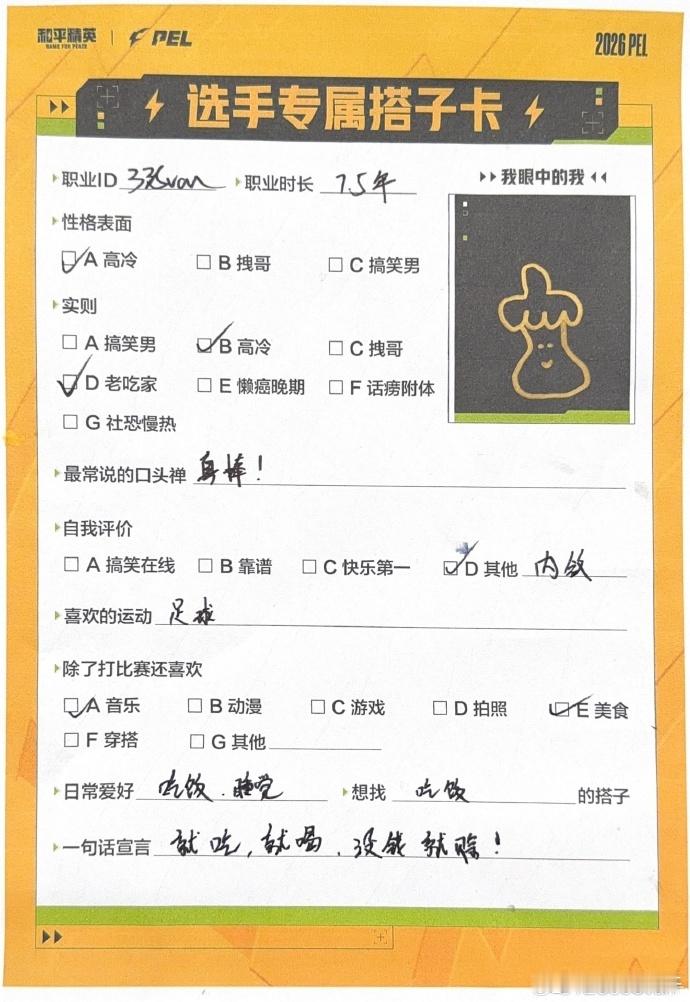 和平精英 GAME FOR PEACE PEL 2026 PEL
选手专属搭子卡
职业ID 33Svan 职业时长 7.5年
我眼中的我
性格表面
A 高冷 B 拽哥 C 搞笑男
实则
A 搞笑男 B 高冷 C 拽哥
D 老吃家 E 懒癌晚期 F 话痨附体
G 社恐慢热
最常说的口头禅 真棒！
自我评价
A 搞笑在线 B 靠谱 C 快乐第一 D 其他 内敛
喜欢的运动 足球
除了打比赛还喜欢
A 音乐 B 动漫 C 游戏 D 拍照 E 美食
F 穿搭 G 其他
日常爱好 吃饭、睡觉 想找 吃饭 的搭子
一句话宣言 就吃，就喝，没钱就赊！